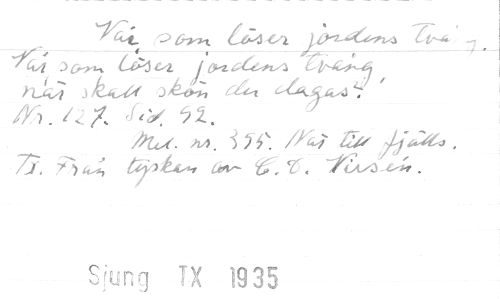 Vår, som löser jordens tvång.
Vår, som löser jordens tvång,
när skall skön du dagas?
Nr. 127. Sid. 92.
Mel. nr. 395. När till fjälls.
Tr. Från tyskan av C. D. Virsén.
Sjung TX 1935